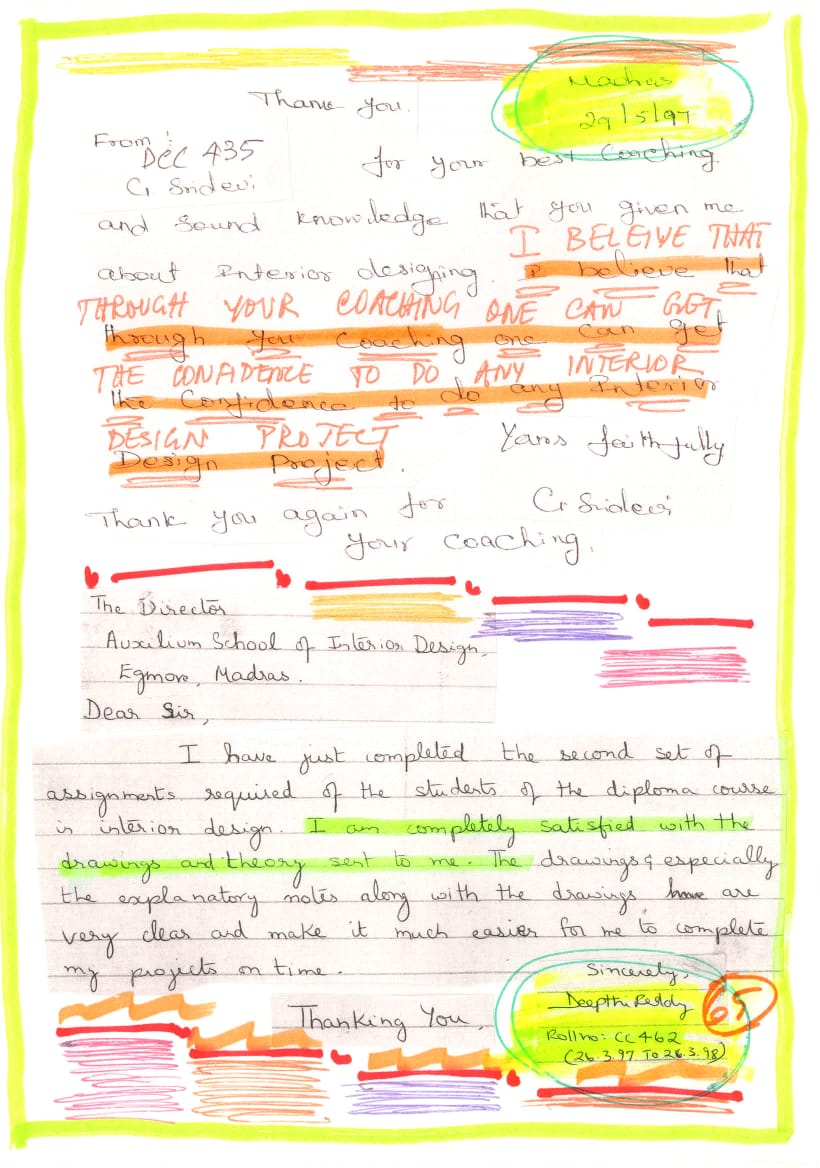 Madras
29/5/97
Thank You.
From :
DCC 435
G Sridevi
for your best Coaching
and Sound Knowledge that you given me
about Interior designing.
I BELEIVE THAT
I believe that
THROUGH YOUR COACHING ONE CAN GET
through you Coaching one can get
THE CONFIDENCE TO DO ANY INTERIOR
the Confidence to do any Interior
DESIGN PROJECT
Design Project.
Yours faithfully
G Sridevi
Thank you again for
your coaching.
The Director
Auxilium School of Interior Design,
Egmore, Madras.
Dear Sir,
I have just completed the second set of
assignments required of the students of the diploma course
in interior design. I am completely satisfied with the
drawings and theory sent to me. The drawings & especially
the explanatory notes along with the drawings are
very clear and make it much easier for me to complete
my projects on time.
Thanking You,
Sincerely,
Deepthi Reddy
65
Roll no: CC 462
(26.3.97 TO 26.3.98)